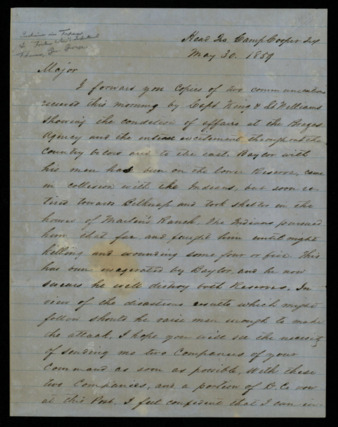 Head Qrs Camp Cooper Tex
May 30. 1859
Major
I forward you copies of two communications
received this morning by Capt. King & Lt Williams
showing the condition of affairs at the Brazos
Agency and the intense excitement throughout the
country below and to the east. Baylor with
his men has been on the lower Reserve, came
in collision with the Indians, but soon re-
tired towards Belknap and took shelter in the
house of Marlin's Ranch. The Indians pursued
him that far and fought him until night
killing and wounding some four or five. This
has even exasperated Baylor, and he now
swears he will destroy both Reserves. In
view of the disastrous results which might
follow should he raise men enough to make
the attack, I hope you will see the necessity
of sending me two Companies of your
Command as soon as possible. With these
two Companies, and a portion of Co now
at this Post, I feel confident that I can